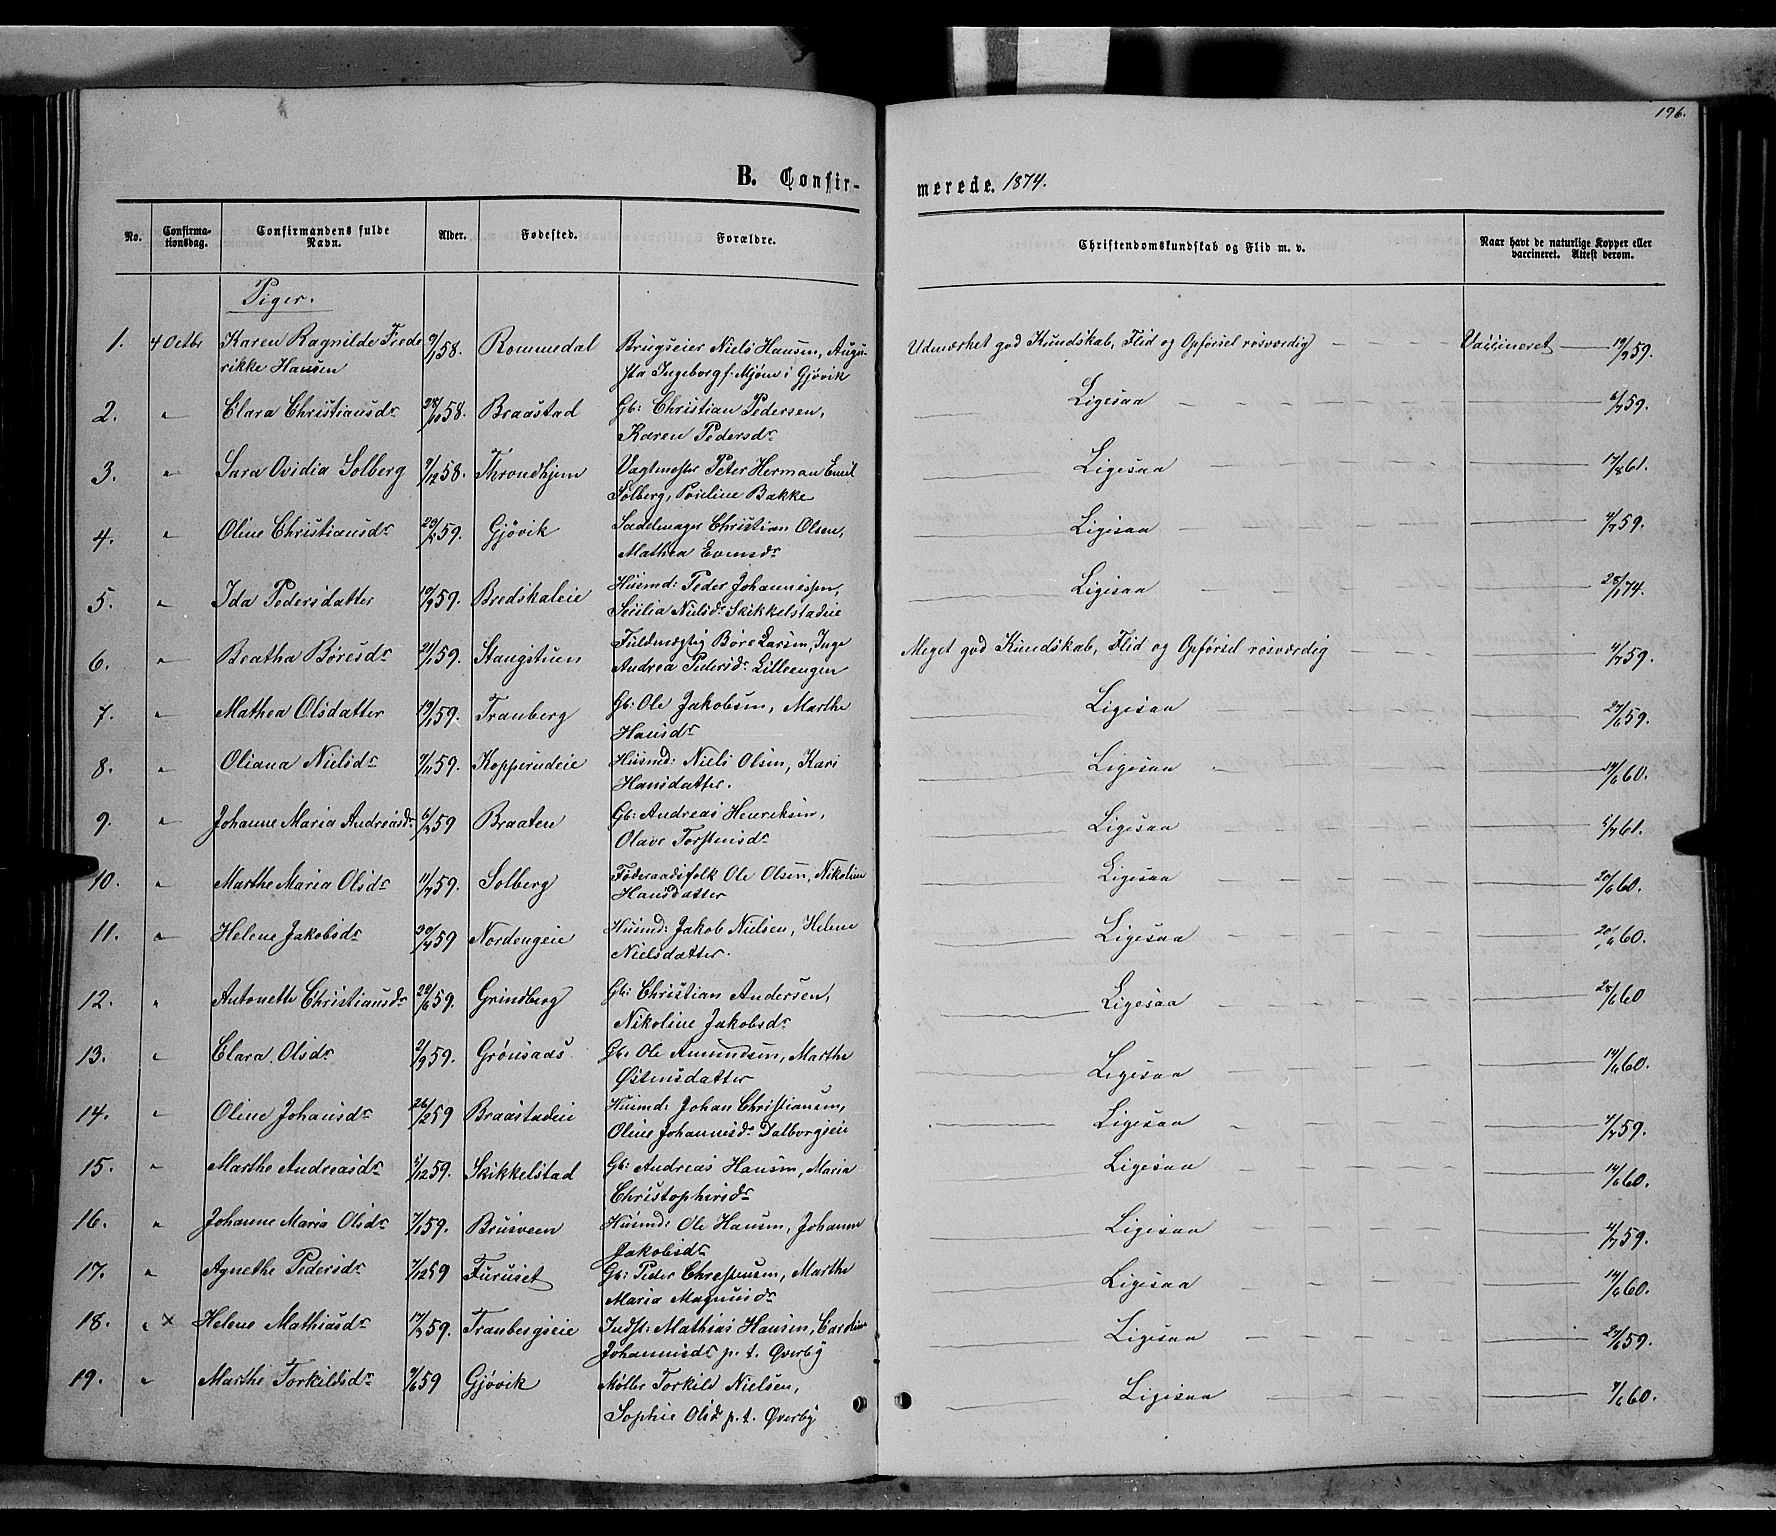 196.
B. Confir-
merede. 1874.
No.
Confirma-
tionsdag.
Confirmandens fulde
Navn.
Alder.
Fødested.
Forældre.
Christendomskundskab og Flid m. v.
Naar havt de naturlige Kopper eller
vaccineret. Attest derom.
Piger.
1. 4 Octbr Karen Ragnilde Frede 58. Rommedal Brugseier Niels Hansen, Augu- Udmærket god Kundskab, Flid og Opførsel rosværdig Vaccineret 19/9 59.
rikke Hansen sta Ingeborg f. Mjøen i Gjøvik
2. " Clara Christiansdr 28/10 58. Braastad Gb: Christian Pedersen, Ligesaa 6/7 59.
Karen Pedersdr
3. " Sara Ovidia Solberg 9/12 58. Throndhjem Vagtmester Peter Herman Emil Ligesaa 17/8 61.
Solberg, Pouline Bakke
4. " Oline Christiansdr 59. Gjøvik Sadelmager Christian Olsen, Ligesaa 4/7 59.
Mathea Evensdr
5. " Ida Pedersdatter 19/9 59. Bredskaleie Husmd: Peder Johannessen, Ligesaa 28/1 74.
Secilia Nielsdr Skikkelstadeie
6. " Beatha Børesdr 21/1 59. Stangstuen Fuldmægtig Børe Larsen, Inge Meget god Kundskab, Flid og Opførsel rosværdig 4/7 59.
Andrea Pedersdr Lilleengen
7. " Mathea Olsdatter 19/1 59. Tranberg Gb: Ole Jakobsen, Marthe Ligesaa 27/6 59.
Hansdr
8. " Oliana Nielsdr 9/11 59. Kopperudeie Husmd: Niels Olsen, Kari Ligesaa 14/6 60.
Hansdatter.
9. " Johanne Maria Andreasdr 59 Braaten Gb: Andreas Henriksen, Ligesaa 5/7 61.
Olave Torstensdr
10. " Marthe Maria Olsdr 11/7 59. Solberg Føderaadsfolk Ole Olsen, Nikoline Ligesaa 20/6 60.
Hansdatter
11. " Helene Jakobsdr 59 Nordengeie Husmd: Jakob Nielsen, Helene Ligesaa 20/6 60.
Nielsdatter.
12. " Antonette Christiansdr 22/6 59. Grindberg Gb: Christian Andersen, Ligesaa 28/6 60
Nikoline Jakobsdr
13. " Clara Olsdr 2/9 59. Grønsaas Gb: Ole Amundsen, Marthe Ligesaa 14/6 60.
Østensdatter
14. " Oline Johansdr 26/2 59 Braastadeie Husmd: Johan Christiansen, Ligesaa 4/7 59.
Oline Johannesdr Dalborgseie
15. " Marthe Andreasdr 5/12 59. Skikkelstad Gb: Andreas Hansen, Maria Ligesaa 14/6 60.
Christophersdr
16. " Johanne Maria Olsdr 7/1 59. Brusveen Husmd: Ole Hansen, Johanne Ligesaa 4/7 59.
Jakobsdr
17. " Agnethe Pedersdr 7/12 59 Furuset Gb: Peder Christensen, Marthe Ligesaa 14/6 60.
Maria Magnusdr
18. " × Helene Mathiasdr 59. Tranbergseie Indst: Mathias Hansen, Caroline Ligesaa 27/6 59.
Johannesdr p. t. Øverby
19. " Marthe Torkildsdr 9/6 59 Gjøvik Møller Torkild Nielsen, Ligesaa 7/6 60.
Sophie Olsdr p. t. Øverby